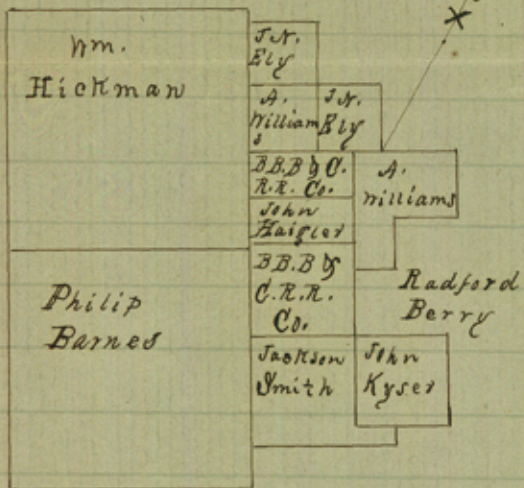 Wm.
Hickman
J.N.
Ely
A.
William
s
J.N.
Ely
B.B.B & C.
R.R. Co.
A.
Williams
John
Haigler
B.B.B &
C.R.R.
Co.
Radford
Berry
Philip
Barnes
Jackson
Smith
John
Kyser